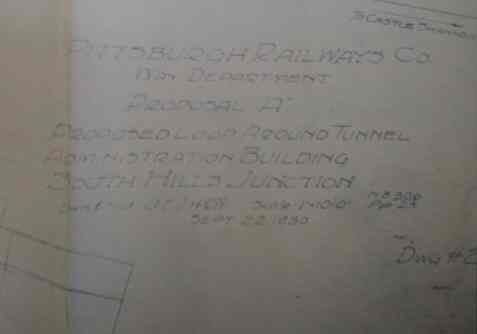 To Castle Shannon
Pittsburgh Railways Co.
Way Department
Proposal "A"
Proposed Loop Around Tunnel
Administration Building
South Hills Junction
Scale 1"=10'-0"
Sept. 22 1930
Dwg #